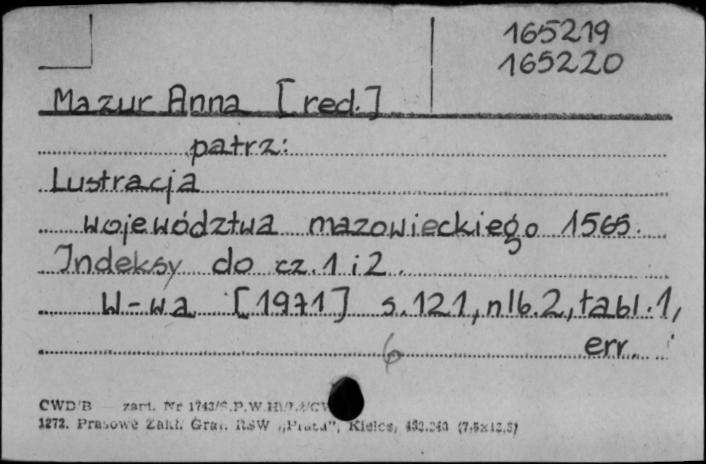 165219
165220
Mazur Anna [red.]
patrz:
Lustracja
województwa mazowieckiego 1565.
Indeksy do cz. 1 i 2.
W-wa [1971] s. 121, nlb. 2, tabl. 1,
err.
6
CWD/B zam. Nr 1743/
1272. Prasowe Zakł. Graf. RSW „Prasa", Kielce,